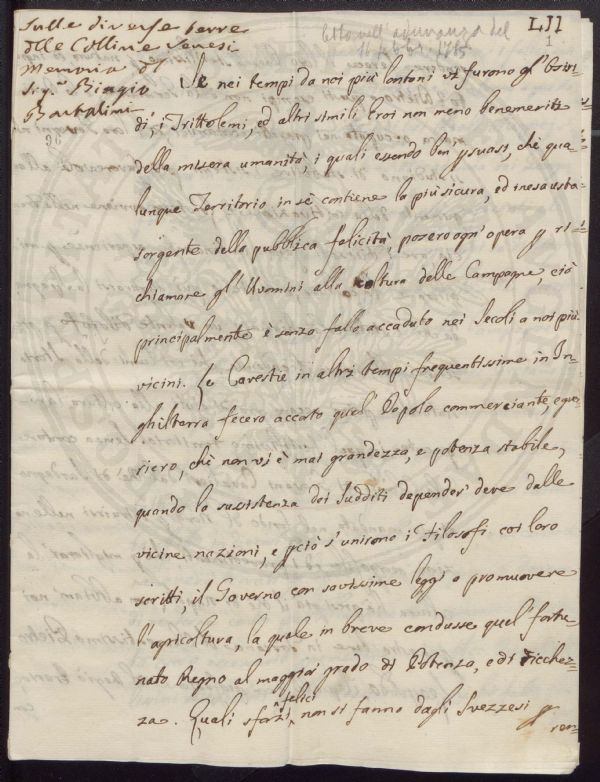 LII
1
Sulle diverse terre
delle Colline Senesi
Memoria del
Sig.r Biagio
Bartalini
Letta nell'adunanza del
Se nei tempi da noi più lontani vi furono gl'Osiri-
di, i Trittolemi, ed altri simili Eroi non meno benemeriti
della misera umanità, i quali essendo ben psuasi, chè qua-
lunque Territorio in sè contiene la più sicura, ed inesausta
sorgente della pubblica felicità, posero ogn'opera p ri-
chiamare gl'Uomini alla coltura delle Campagne, ciò
principalmente è senza fallo accaduto nei Secoli a noi più
vicini. Le Carestie in altri tempi frequentissime in In-
ghilterra fecero accorto quel Popolo commerciante, e gue-
riero, chè non vi è mai grandezza, e potenza stabile,
quando la sussistenza dei Sudditi depender deve dalle
vicine nazioni, e pciò s'unirono i Filosofi coi loro
scritti, il Governo con savissime leggi a promuovere
l'agricoltura, la quale in breve condusse quel fortu
nato Regno al maggior grado di Potenza, e di ricchez-
za. Quali sforzi felici non si fanno dagli Svezzesi p
ren-